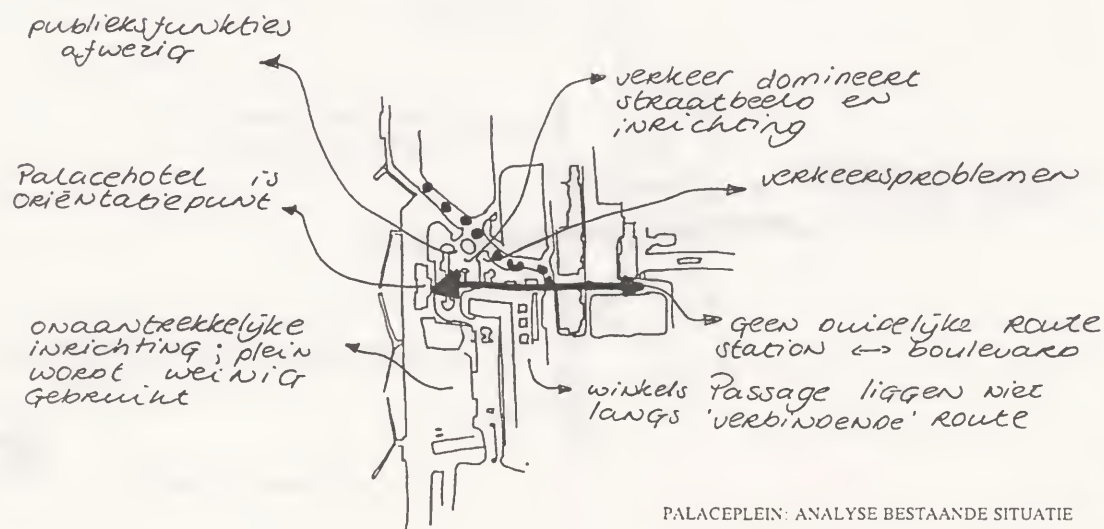 publieksfunkties
afwezig
verkeer domineert
straatbeeld en
inrichting
Palacehotel is
oriëntatiepunt
verkeersproblemen
onaantrekkelijke
inrichting; plein
wordt weinig
gebruikt
geen duidelijke route
station ↔ boulevard
winkels Passage liggen niet
langs 'verbindende' route
PALACEPLEIN: ANALYSE BESTAANDE SITUATIE